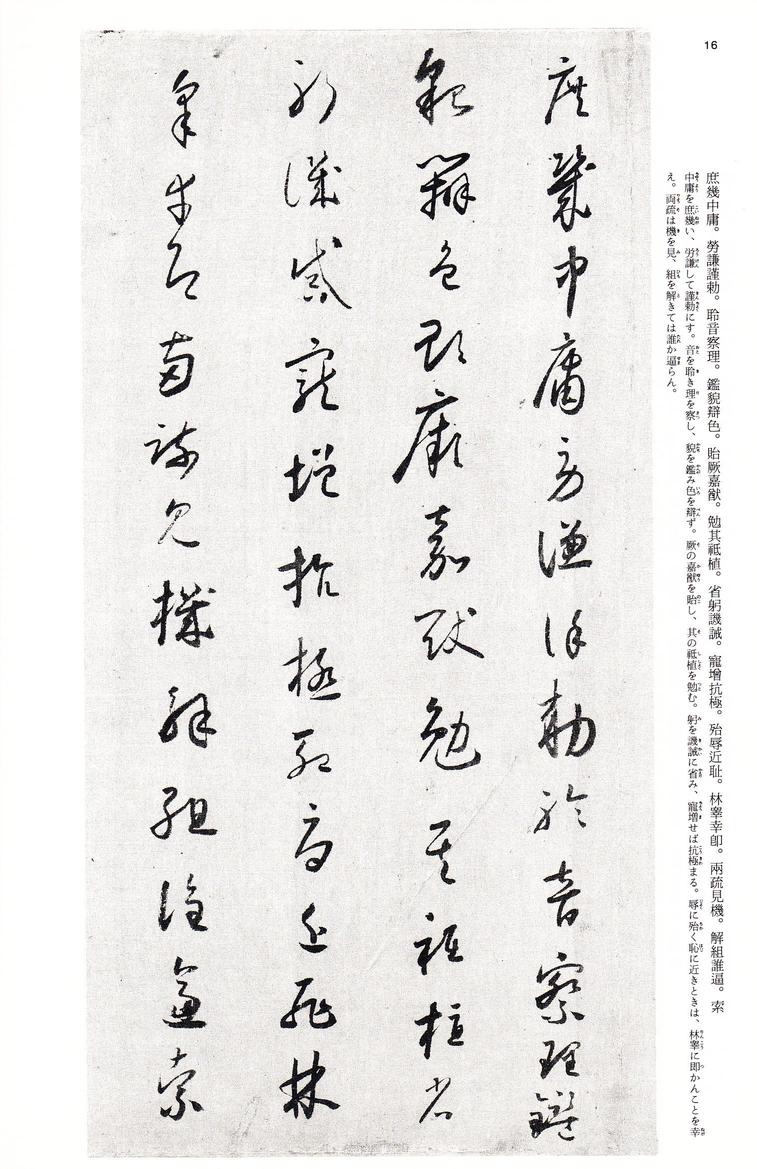 16
庶幾中庸。勞謙謹勅。聆音察理。鑑貌辯色。貽厥嘉猷。勉其祗植。省躬譏誡。寵增抗極。殆辱近耻。林睾幸卽。兩疏見機。解組誰逼。索
中庸を庶幾い、労謙して謹勅にす。音を聆き理を察し、貌を鑑み色を辯ず。厥の嘉猷を貽し、其の祗植を勉む。躬を譏誡に省み、寵増せば抗極まる。辱に殆く恥に近きときは、林睾に即かんことを幸
え。両疏は機を見、組を解きては誰か逼らん。
庶幾中庸勞謙謹勅聆音察理鑑
貌辯色貽厥嘉猷勉其祗植省
躬譏誡寵增抗極殆辱近耻林
睾幸卽兩疏見機解組誰逼索